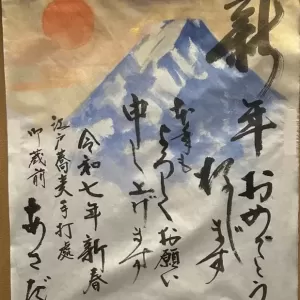 新年おめでとう
ございます
本年も
よろしくお願い
申し上げます
令和七年新春
江戸蕎麦手打處
御蔵前
あさだ